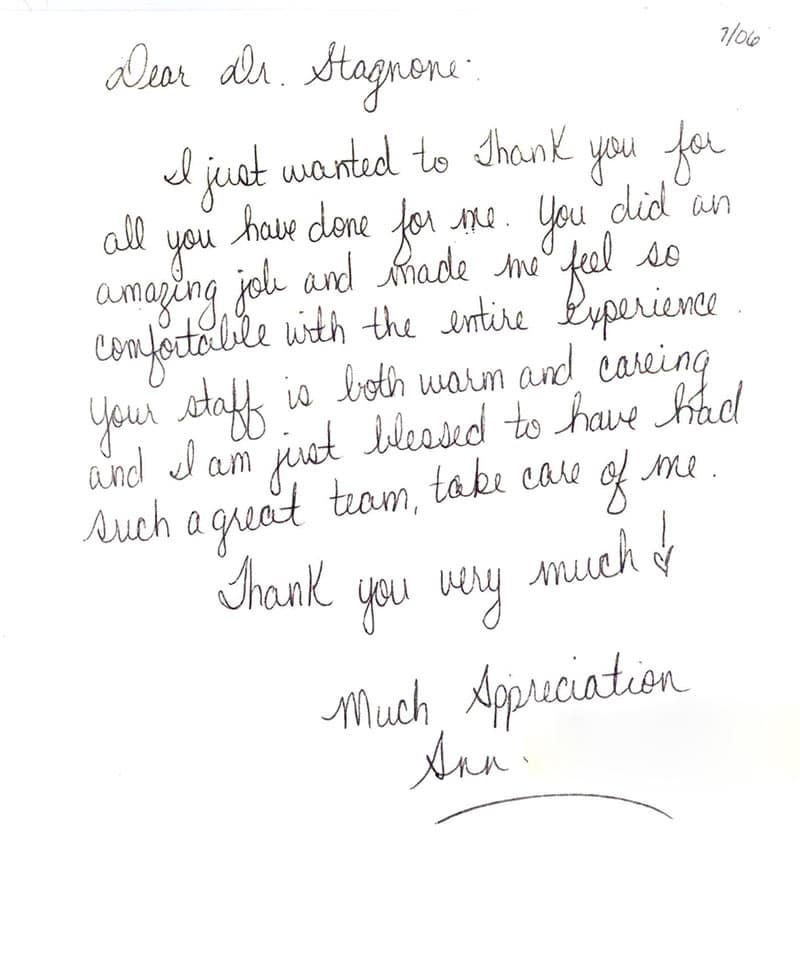 7/06
Dear Dr. Stagnone:
I just wanted to Thank you for
all you have done for me. You did an
amazing job and made me feel so
comfortable with the entire experience.
Your staff is both warm and careing
and I am just blessed to have had
such a great team, take care of me.
Thank you very much!
Much Appreciation
Ann.